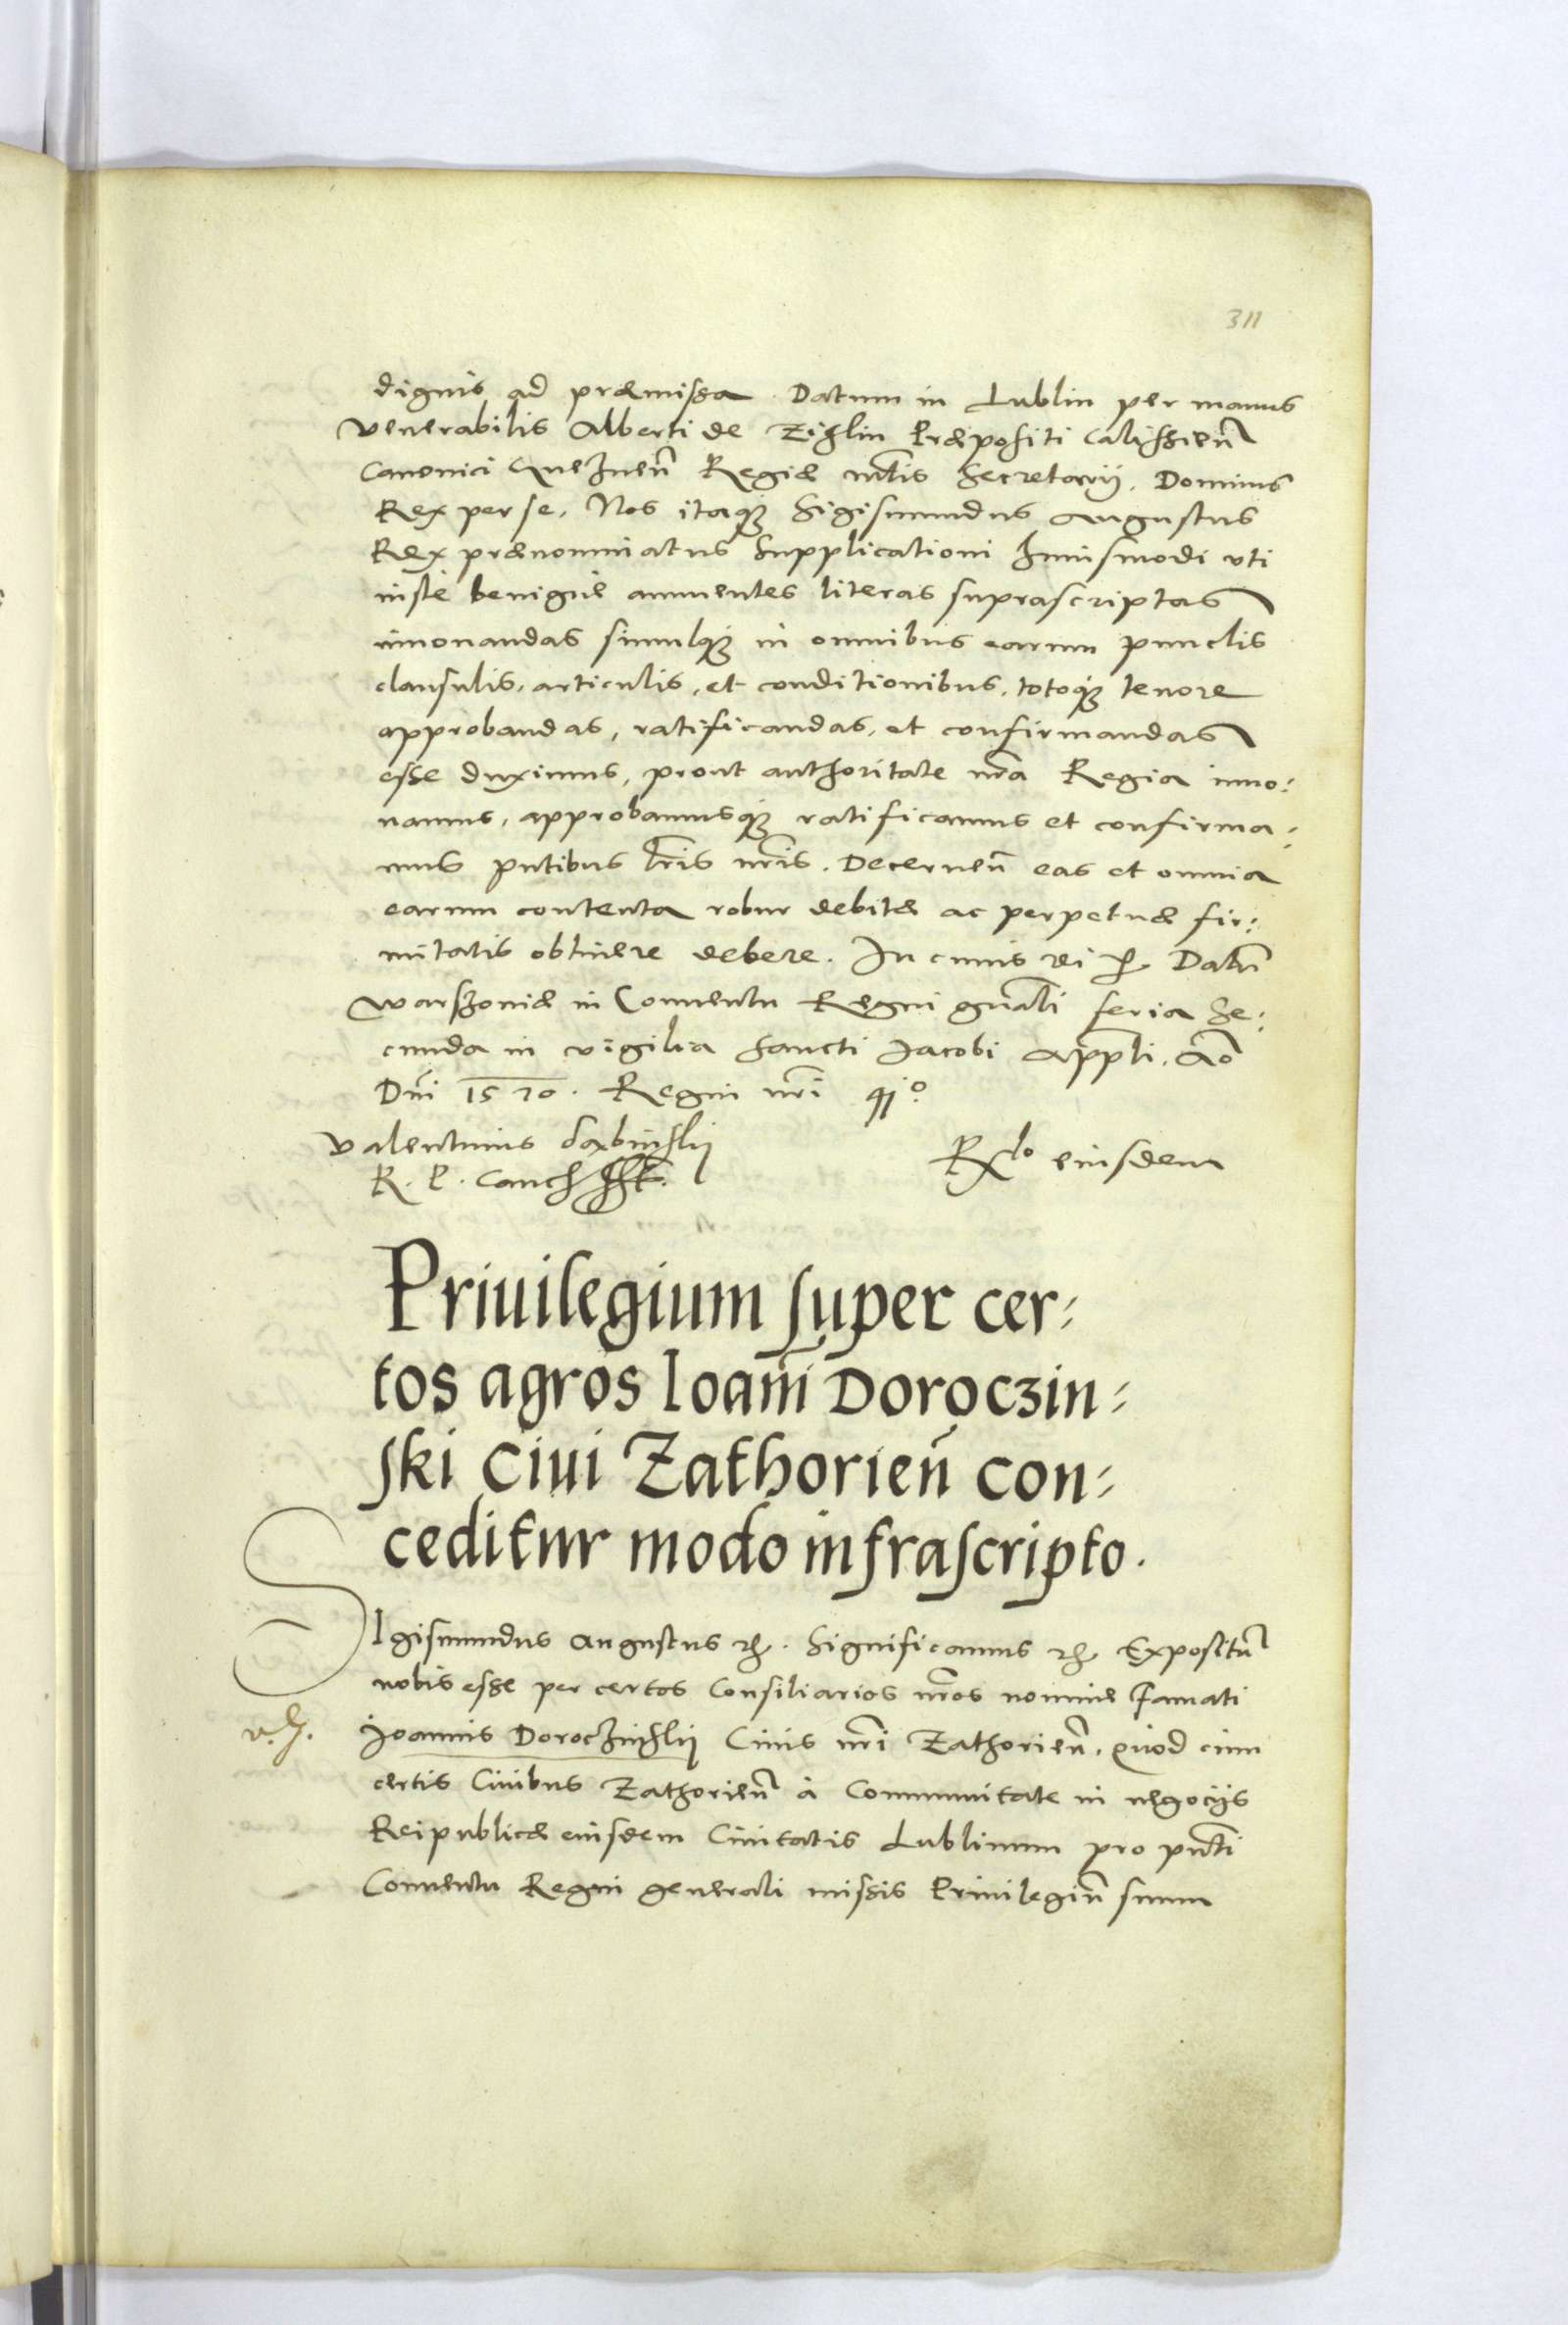 311
dignis ad præmissa. Datum in Lublin per manus
Venerabilis Alberti de Zichlin Præpositi Calissieñ
Canonici Gneznen̄ Regiæ m̄tis Secretarij. Dominus
Rex per se. Nos itaq́ꝫ Sigismundus Augustus
Rex prænominatus Supplicationi huiusmodi vti
iustè benignè annuentes literas suprascriptas
innouandas simulq́ꝫ in omnibus earum punctis
clausulis, articulis, et conditionibus, totoq́ꝫ tenore
approbandas, ratificandas, et confirmandas
esse duximus, prout authoritate nr̄a Regia inno:
uamus, approbamusq́ꝫ ratificamus et confirma:
mus pn̄tibus lr̄is nr̄is. Decernen̄ eas et omnia
earum contenta robur debitæ ac perpetuæ fir:
mitatis obtinere debere. In cuius rei ꝛc̄ Datū
Warszouiæ in Conuentu Regni gn̄ali feria Se:
cunda in vigilia Sancti Jacobi Appl̄i. Aō
Dn̄i 1570. Regni nr̄i 41º
Valentinus Dąbinskij
R. P. Canc̄
Rlo eiusdem
Priuilegium super cer:
tos agros Ioan̄i Doroczin:
ski Ciui Zathorien̄ con:
ceditur modo infrascripto.
SIgismundus Augustus ꝛc̄. Significamus ꝛc̄ Expositū
nobis esse per certos Consiliarios nr̄os nomine Famati
Joannis Doroczinskij Ciuis nr̄i Zathorien̄. quod cum
certis Ciuibus Zathorien̄ à Communitate in negocijs
Reipublicæ eiusdem Ciuitatis Lublinum pro pn̄ti
Conuentu Regni generali missis Priuilegiū suum